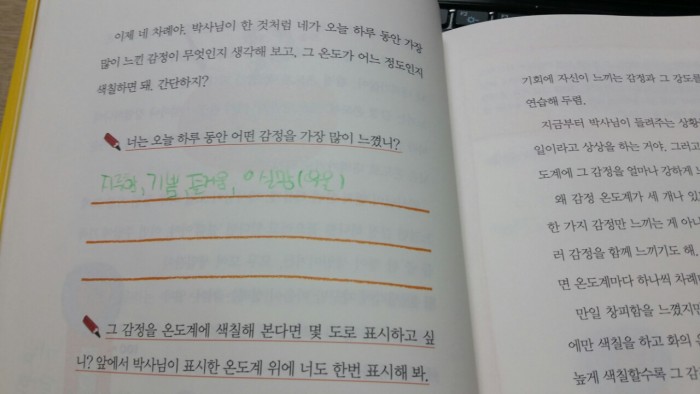 이제 네 차례야. 박사님이 한 것처럼 네가 오늘 하루 동안 가장
많이 느낀 감정이 무엇인지 생각해 보고, 그 온도가 어느 정도인지
색칠하면 돼. 간단하지?
너는 오늘 하루 동안 어떤 감정을 가장 많이 느꼈니?
기쁨, 즐거움,
그 감정을 온도계에 색칠해 본다면 몇 도로 표시하고 싶
니? 앞에서 박사님이 표시한 온도계 위에 너도 한번 표시해 봐.
기회에 자신이 느끼는 감정과 그 강도를
연습해 두렴.
지금부터 박사님이 들려주는 상황
일이라고 상상을 하는 거야. 그러고
도계에 그 감정을 얼마나 강하게 느
왜 감정 온도계가 세 개나 있
한 가지 감정만 느끼는 게 아니
러 감정을 함께 느끼기도 해.
면 온도계마다 하나씩 차례
만일 창피함을 느꼈지만
에만 색칠을 하고 화의 온
높게 색칠할수록 그 감